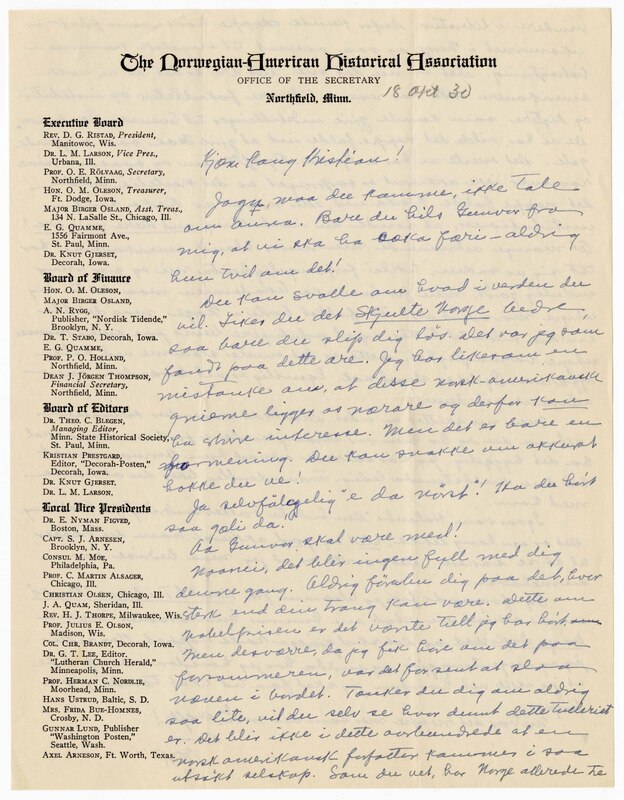 The Norwegian-American Historical Association
OFFICE OF THE SECRETARY
Northfield, Minn.
18 okt 30
Executive Board
REV. D. G. RISTAD, President,
Manitowoc, Wis.
DR. L. M. LARSON, Vice Pres.,
Urbana, Ill.
PROF. O. E. RÖLVAAG, Secretary,
Northfield, Minn.
HON. O. M. OLESON, Treasurer,
Ft. Dodge, Iowa.
MAJOR BIRGER OSLAND, Asst. Treas.,
134 N. LaSalle St., Chicago, Ill.
E. G. QUAMME,
1556 Fairmont Ave.,
St. Paul, Minn.
DR. KNUT GJERSET,
Decorah, Iowa.
Board of Finance
HON. O. M. OLESON,
MAJOR BIRGER OSLAND,
A. N. RYGG,
Publisher, "Nordisk Tidende,"
Brooklyn, N. Y.
DR. T. STABO, Decorah, Iowa.
E. G. QUAMME,
PROF. P. O. HOLLAND,
Northfield, Minn.
DEAN J. JÖRGEN THOMPSON,
Financial Secretary,
Northfield, Minn.
Board of Editors
DR. THEO. C. BLEGEN,
Managing Editor,
Minn. State Historical Society,
St. Paul, Minn.
KRISTIAN PRESTGARD,
Editor, "Decorah-Posten,"
Decorah, Iowa.
DR. KNUT GJERSET.
DR. L. M. LARSON.
Local Vice Presidents
DR. E. NYMAN FIGVED,
Boston, Mass.
CAPT. S. J. ARNESEN,
Brooklyn, N. Y.
CONSUL M. MOE,
Philadelphia, Pa.
PROF. C. MARTIN ALSAGER,
Chicago, Ill.
CHRISTIAN OLSEN, Chicago, Ill.
J. A. QUAM, Sheridan, Ill.
REV. H. J. THORPE, Milwaukee, Wis.
PROF. JULIUS E. OLSON,
Madison, Wis.
COL. CHR. BRANDT, Decorah, Iowa.
DR. G. T. LEE, Editor,
"Lutheran Church Herald,"
Minneapolis, Minn.
PROF. HERMAN C. NORDLIE,
Moorhead, Minn.
HANS USTRUD, Baltic, S. D.
MRS. FRIDA BUE-HOMNES,
Crosby, N. D.
GUNNAR LUND, Publisher
"Washington Posten,"
Seattle, Wash.
AXEL ARNESON, Ft. Worth, Texas.
Kjære Kong Kristian!
maa du komme, ikke tale
om anna. Bare du hils Gunvor fra
mig, at vi ska ha — aldrig
tvil om det!
Du kan om hvad i verden du
vil. Likes du det Skjulte Norge bedre,
saa bare du slip dig løs. Det var jeg som
fandt paa dette are. Jeg har likesom en
mistanke om, at disse norsk-amerikanske
gnierne ligger os nærare og derfor kan
ha større interesse. Men det er bare en
formening. Du kan snakke om akkurat
hokke du ve!
Ja selvfølgelig "e da nørst"! Ha du hørt
saa da!
Aa Gunvor skal være med!
Nooneii, det blir ingen fyll med dig
denne gang. Aldrig dig paa det, hvor
sterk end din trang kan være. Dette om
nobelprisen er det værste tull jeg har hørt om.
Men desværre, da jeg fik høre om det paa
forsommeren, var det for sent at slaa
næven i bordet. Tænker du dig om aldrig
saa lite, vil du selv se hvor dumt dette
er. Det blir ikke i dette aarhundrede at en
norsk amerikansk forfatter kommer i saa
utsøkt selskap. Som du vet, har Norge allerede tre